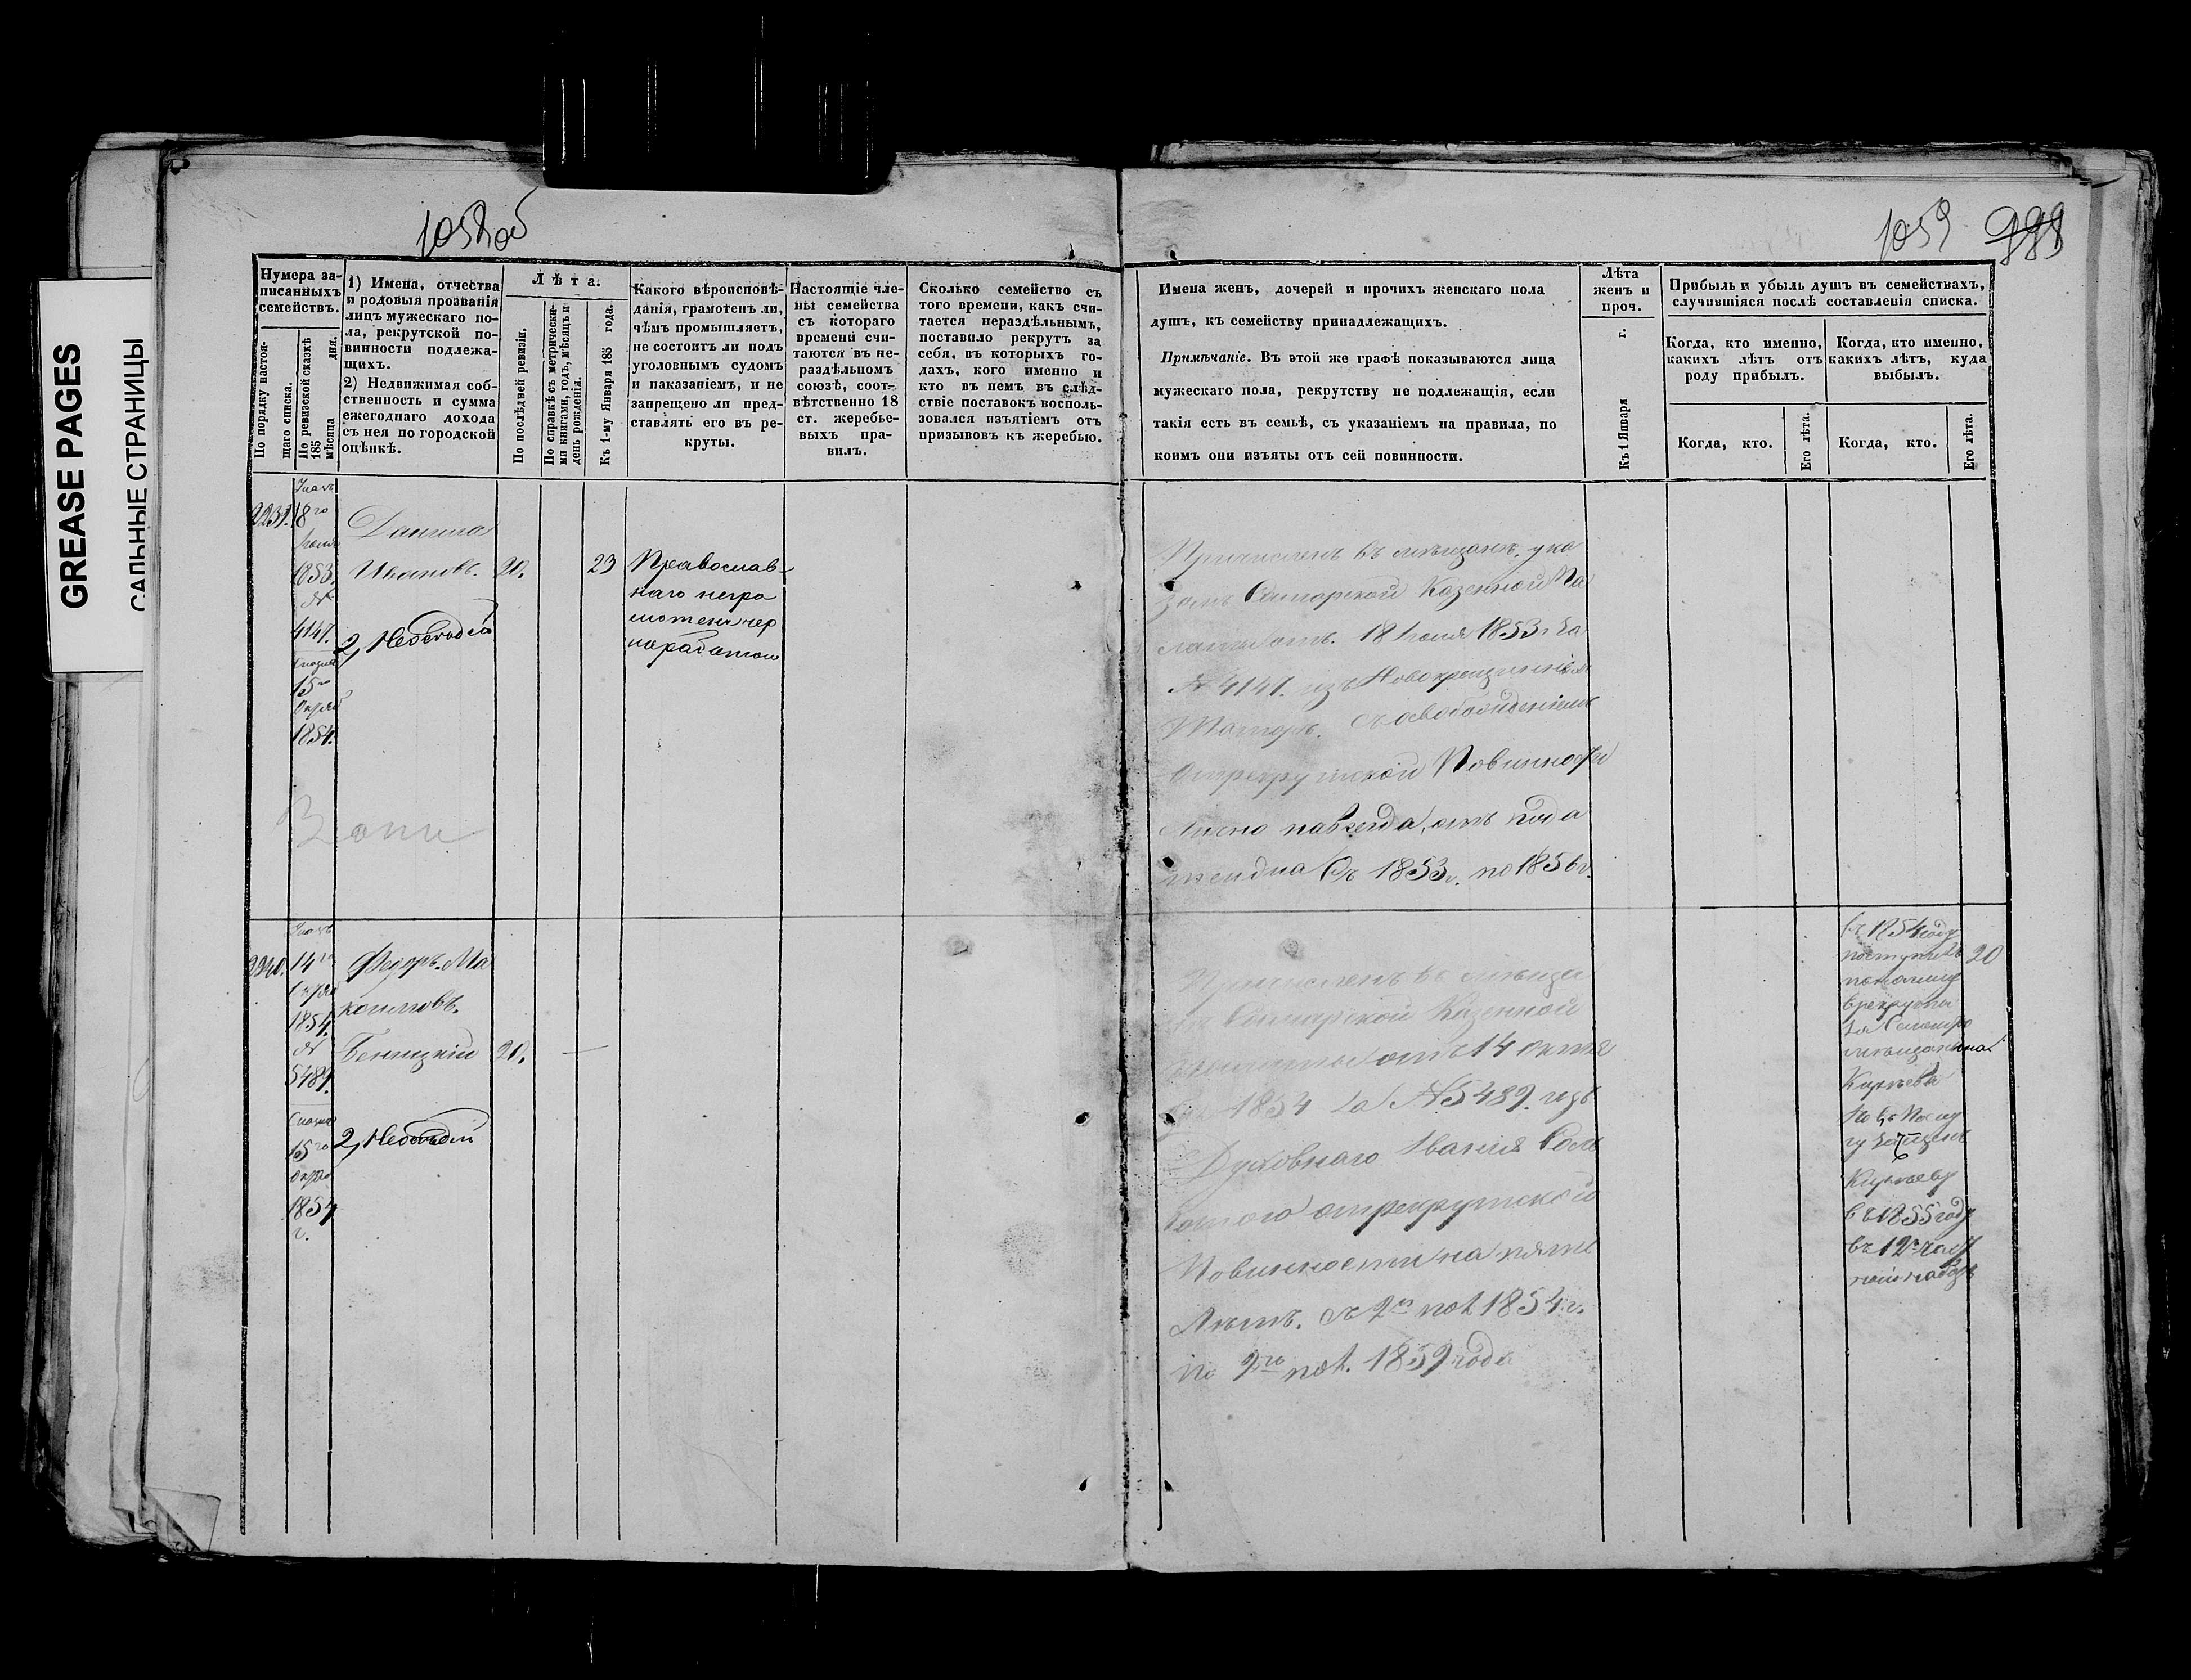 GREASE PAGES
САЛЬНЫЕ СТРАНИЦЫ
1058об
1059 999
Нумера за-
писанныхъ
семействъ.
По порядку настоя-
щаго списка.
По ревизской сказкѣ
185 дня.
мѣсяца
1) Имена, отчества
и родовыя прозванія
лицъ мужескаго по-
ла, рекрутской по-
винности подлежа-
щихъ.
2) Недвижимая соб-
ственность и сумма
ежегоднаго дохода
съ нея по городской
оцѣнкѣ.
Лѣта.
По послѣдней ревизіи.
По справкѣ съ метрически-
ми книгами, годъ, мѣсяцъ и
день рожденія.
Къ 1-му Января 185 года.
Какого вѣроисповѣ-
данія, грамотенъ ли,
чѣмъ промышляетъ,
не состоитъ ли подъ
уголовнымъ судомъ
и наказаніемъ, и не
запрещено ли пред-
ставлять его въ ре-
круты.
Настоящіе чле-
ны семейства
съ котораго
времени счи-
таются въ не-
раздѣльномъ
союзѣ, соот-
вѣтственно 18
ст. жеребье-
выхъ пра-
вилъ.
Сколько семейство съ
того времени, какъ счи-
тается нераздѣльнымъ,
поставило рекрутъ за
себя, въ которыхъ го-
дахъ, кого именно и
кто въ немъ въ слѣд-
ствіе поставокъ восполь-
зовался изъятіемъ отъ
призывовъ къ жеребью.
Имена женъ, дочерей и прочихъ женскаго пола
душъ, къ семейству принадлежащихъ.
Примѣчаніе. Въ этой же графѣ показываются лица
мужескаго пола, рекрутству не подлежащія, если
такія есть въ семьѣ, съ указаніемъ на правила, по
коимъ они изъяты отъ сей повинности.
Лѣта
женъ и
проч.
Къ 1 Января г.
Прибыль и убыль душъ въ семействахъ,
случившіяся послѣ составленія списка.
Когда, кто именно,
какихъ лѣтъ отъ
роду прибылъ.
Когда, кто именно,
какихъ лѣтъ, куда
выбылъ.
Когда, кто.
Его лѣта.
Когда, кто.
Его лѣта.
2239.
Указъ
18го
Іюля
1853.
№
4147.
15го
Октяб
1854.
Данила
Ивановъ. 20. 23
Православ-
наго негра
мотенъ чер
наработою
Причисленъ въ мѣщане, ука
зомъ Самарской Казенной Па
латы отъ. 18 Іюля 1853 г. за
№ 4147. изъ Новокрещенныхъ
Татаръ. съ освобожденіемъ
отрекрутской Повинности
лично навсегда, отъ пода
тей на Съ 1853 г. по 1856 г.
2240.
Указъ
14го
Октяб
1854.
№
5489.
15го
Октяб
1854
г.
Федоръ. Ма
Беницкій 20.
Причисленъ въ мѣща
Самарской Казенной
палаты отъ 14 Октя
1854 за № 5489. изъ
Духовнаго званія съ
отрекрутской
Повинности на пять
Лѣтъ. съ 2й пол. 1854 г.
по 2ю пол. 1859 года
въ 1854 году
поступилъ 20
по найму
врекруты
за Самар
мѣщанина
Киреева
въ 1855 году
въ 12й част
ный наборъ